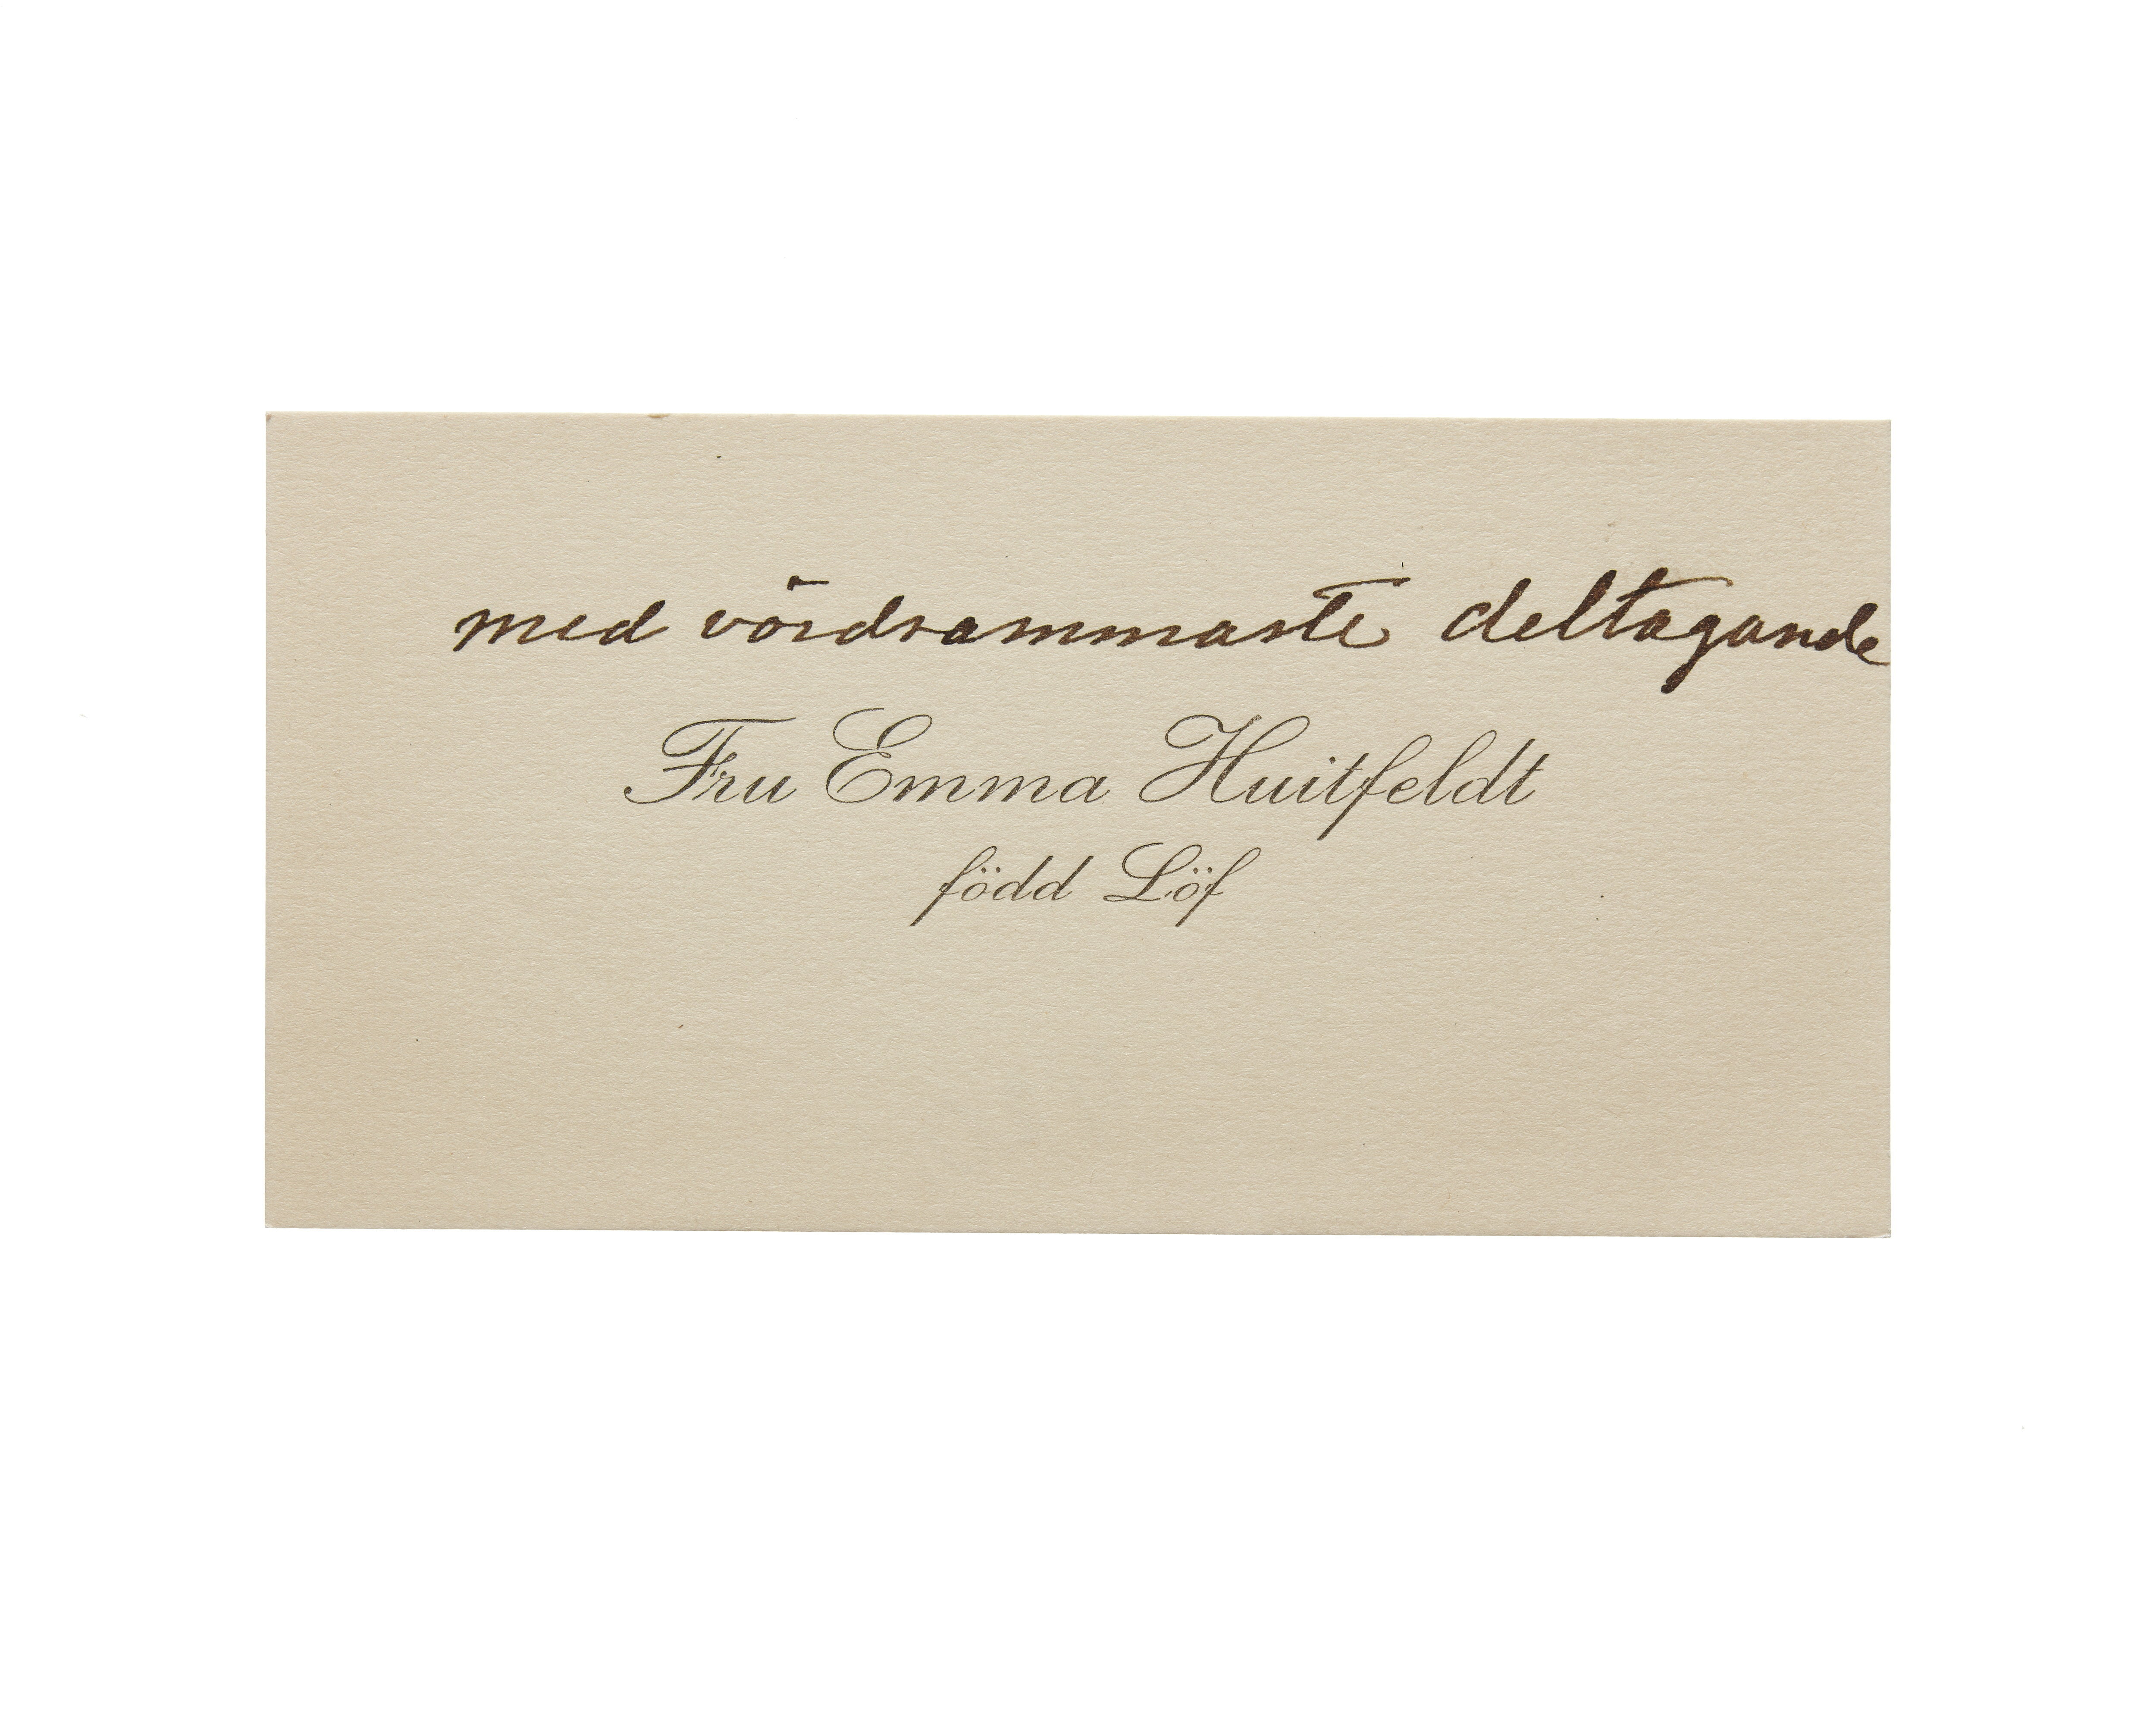 med vördsammaste deltagande
Fru Emma Huitfeldt
född Löf